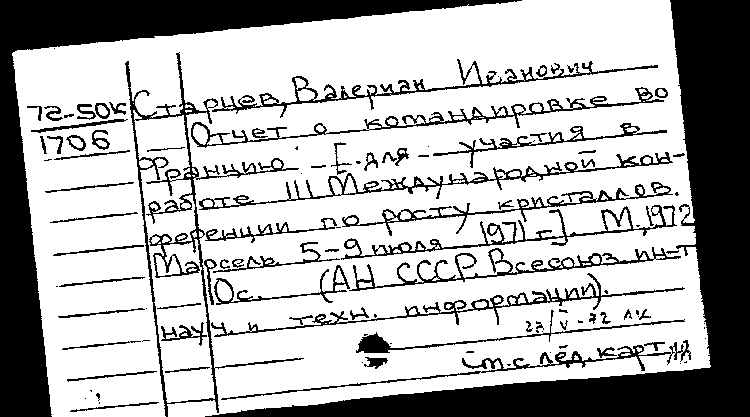 72-50к Старцев, Валериан Иванович
1706 Отчет о командировке во
Францию [для участия в
работе III Международной кон-
ференции по росту кристаллов.
Марсель 5-9 июля 1971 г.]. М., 1972
10с. (АН СССР. Всесоюз. ин-т
науч. и техн. информации).
23/V-72 лк
См. след. карт.